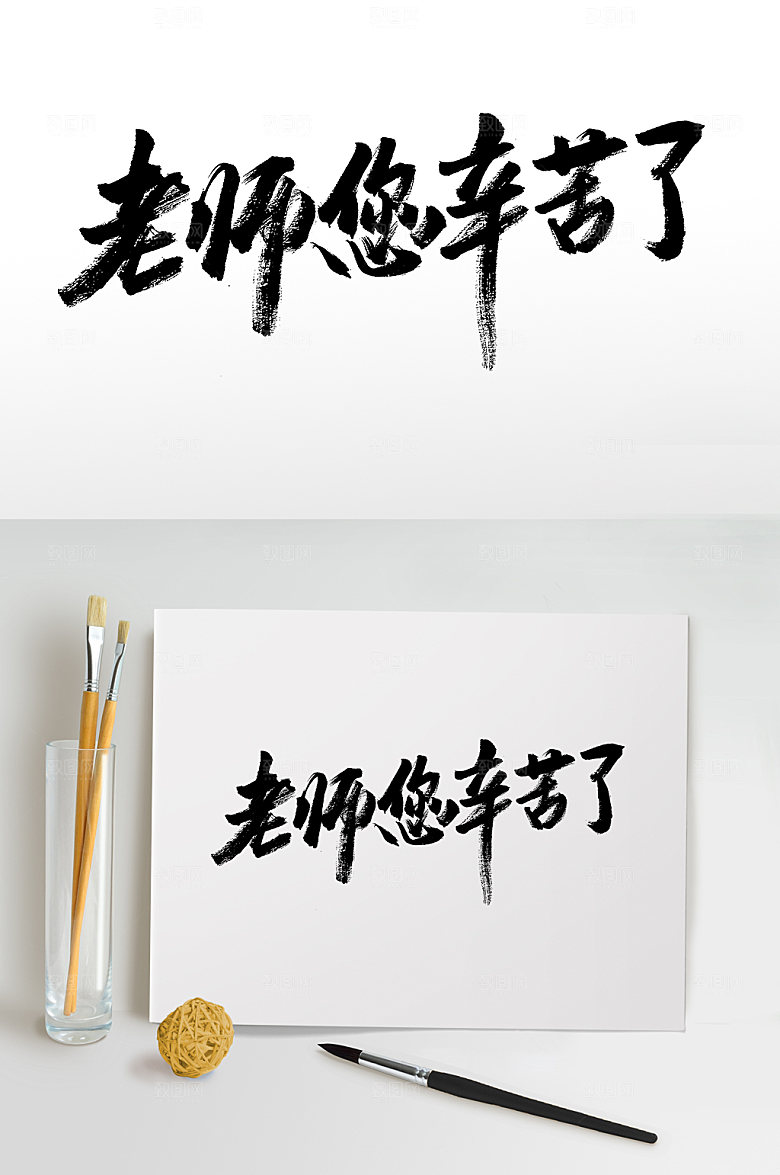 老师您辛苦了
老师您辛苦了